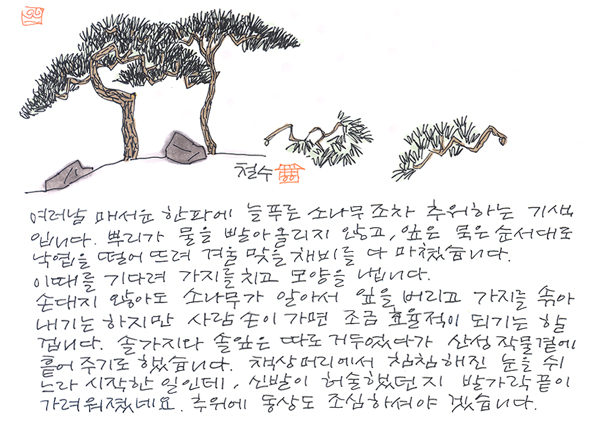 철수
여러날 매서운 한파에 늘푸른 소나무조차 추워하는 기색
입니다. 뿌리가 물을 빨아올리지 않고, 잎은 묵은 순서대로
낙엽을 떨어뜨려 겨울맞을채비를 다 마쳤습니다.
이때를 기다려 가지를치고 모양을 냅니다.
손대지 않아도 소나무가 알아서 잎을 버리고 가지를 솎아
내기는 하지만 사람 손이 가면 조금 효율적이 되기는 할
겁니다. 솔가지와 솔잎은 따로 거두었다가 산성작물곁에
흩어 주기로 했습니다. 책상머리에서 침침해진 눈을 쉬
느라 시작한 일인데, 신발이 허술했던지 발가락끝이
가려워졌네요. 추위에 동상도 조심하셔야 겠습니다.